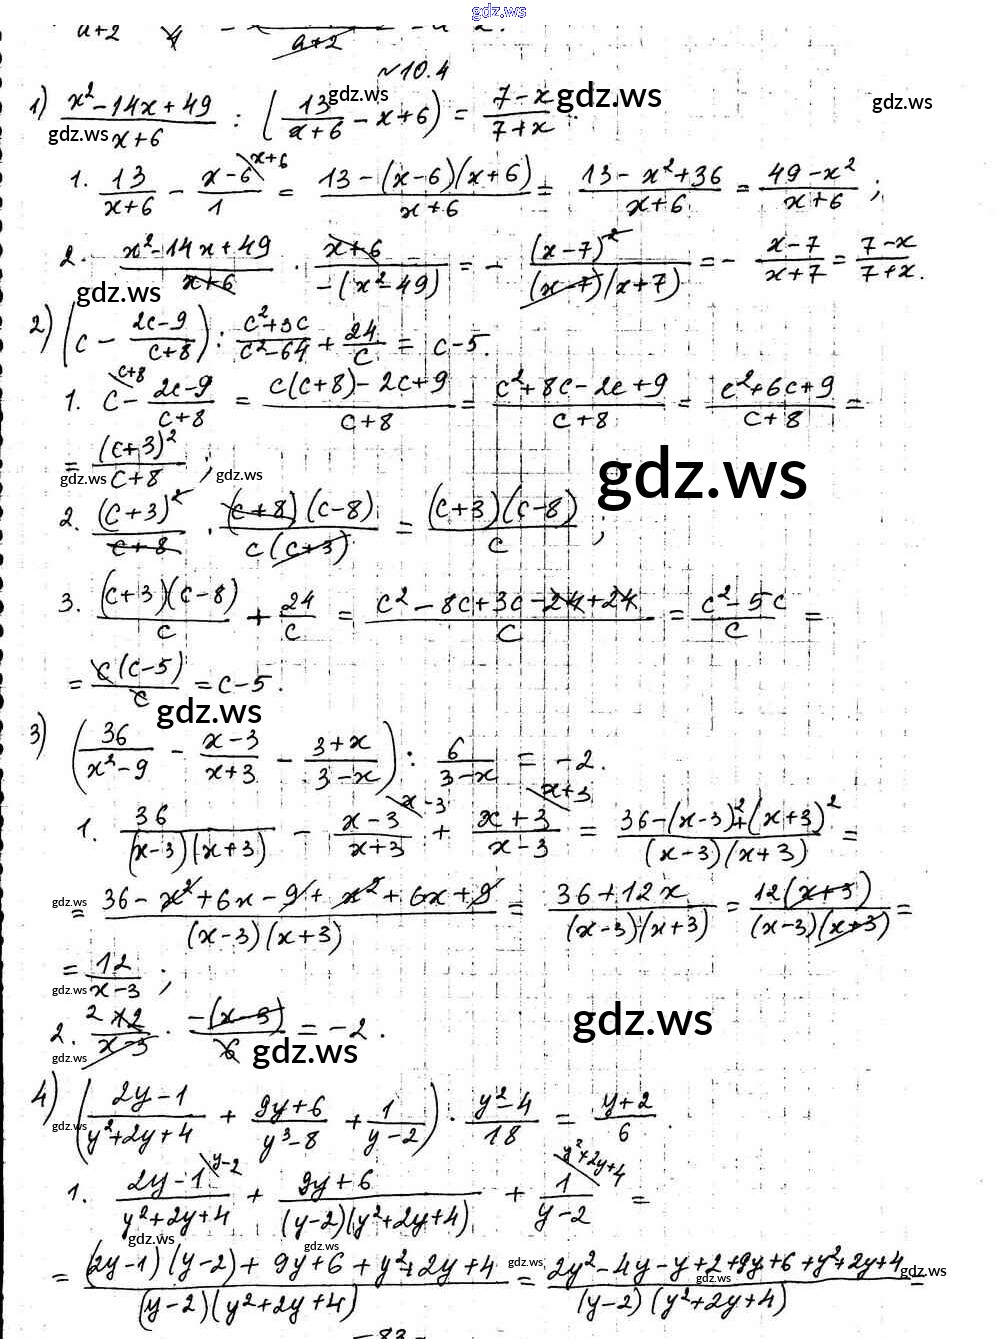 gdz.ws
a+2 4 - ―/(a+2) = -a-2.
№10.4
1) (x²-14x+49)/(x+6) : (13/(x+6) - x+6) = (7-x)/(7+x).
gdz.ws gdz.ws gdz.ws gdz.ws
1. 13/(x+6) - (x-6)/1 ^(x+6) = (13-(x-6)(x+6))/(x+6) = (13-x²+36)/(x+6) = (49-x²)/(x+6) ;
2. (x²-14x+49)/(x+6) · (x+6)/(-(x²-49)) = - (x-7)²/((x-7)(x+7)) = - (x-7)/(x+7) = (7-x)/(7+x).
gdz.ws
2) (c - (2c-9)/(c+8)) : (c²+3c)/(c²-64) + 24/c = c-5.
1. c ^(c+8) - (2c-9)/(c+8) = (c(c+8)-2c+9)/(c+8) = (c²+8c-2c+9)/(c+8) = (c²+6c+9)/(c+8) =
= (c+3)²/(c+8) ;
gdz.ws gdz.ws gdz.ws
2. (c+3)²/(c+8) · ((c+8)(c-8))/(c(c+3)) = ((c+3)(c-8))/c ;
3. ((c+3)(c-8))/c + 24/c = (c²-8c+3c-24+24)/c = (c²-5c)/c =
= (c(c-5))/c = c-5.
gdz.ws
3) (36/(x²-9) - (x-3)/(x+3) - (3+x)/(3-x)) : 6/(3-x) = -2.
1. 36/((x-3)(x+3)) - (x-3)/(x+3) ^(x-3) + (x+3)/(x-3) ^(x+3) = (36-(x-3)²+(x+3)²)/((x-3)(x+3)) =
gdz.ws
= (36-x²+6x-9+x²+6x+9)/((x-3)(x+3)) = (36+12x)/((x-3)(x+3)) = (12(x+3))/((x-3)(x+3)) =
= 12/(x-3) ;
gdz.ws gdz.ws
2. 2 12/(x-3) · (-(x-3))/6 = -2.
gdz.ws gdz.ws
4) ((2y-1)/(y²+2y+4) + (9y+6)/(y³-8) + 1/(y-2)) · (y²-4)/18 = (y+2)/6.
gdz.ws
1. (2y-1)/(y²+2y+4) ^(y-2) + (9y+6)/((y-2)(y²+2y+4)) + 1/(y-2) ^(y²+2y+4) =
gdz.ws gdz.ws gdz.ws gdz.ws gdz.ws
= ((2y-1)(y-2)+9y+6+y²+2y+4)/((y-2)(y²+2y+4)) = (2y²-4y-y+2+9y+6+y²+2y+4)/((y-2)(y²+2y+4)) =
-83-